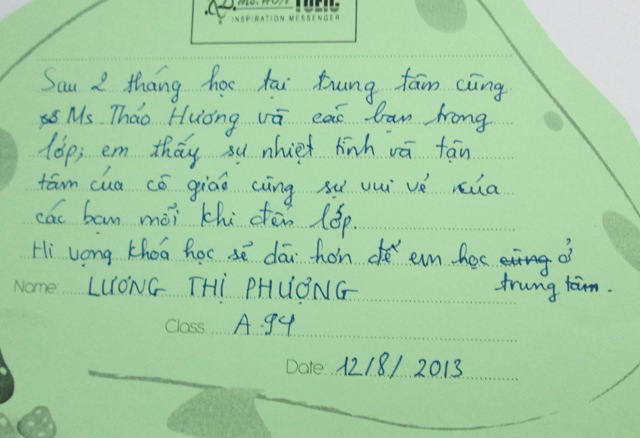 Ms. HOA TOEIC
INSPIRATION MESSENGER
Sau 2 tháng học tại trung tâm cùng
Ms Thảo Hương và các bạn trong
lớp; em thấy sự nhiệt tình và tận
tâm của cô giáo cùng sự vui vẻ của
các bạn mỗi khi đến lớp.
Hi vọng khoá học sẽ dài hơn để em học cùng ở
trung tâm.
Name: LƯƠNG THỊ PHƯỢNG
Class: A.94
Date: 12/8/2013